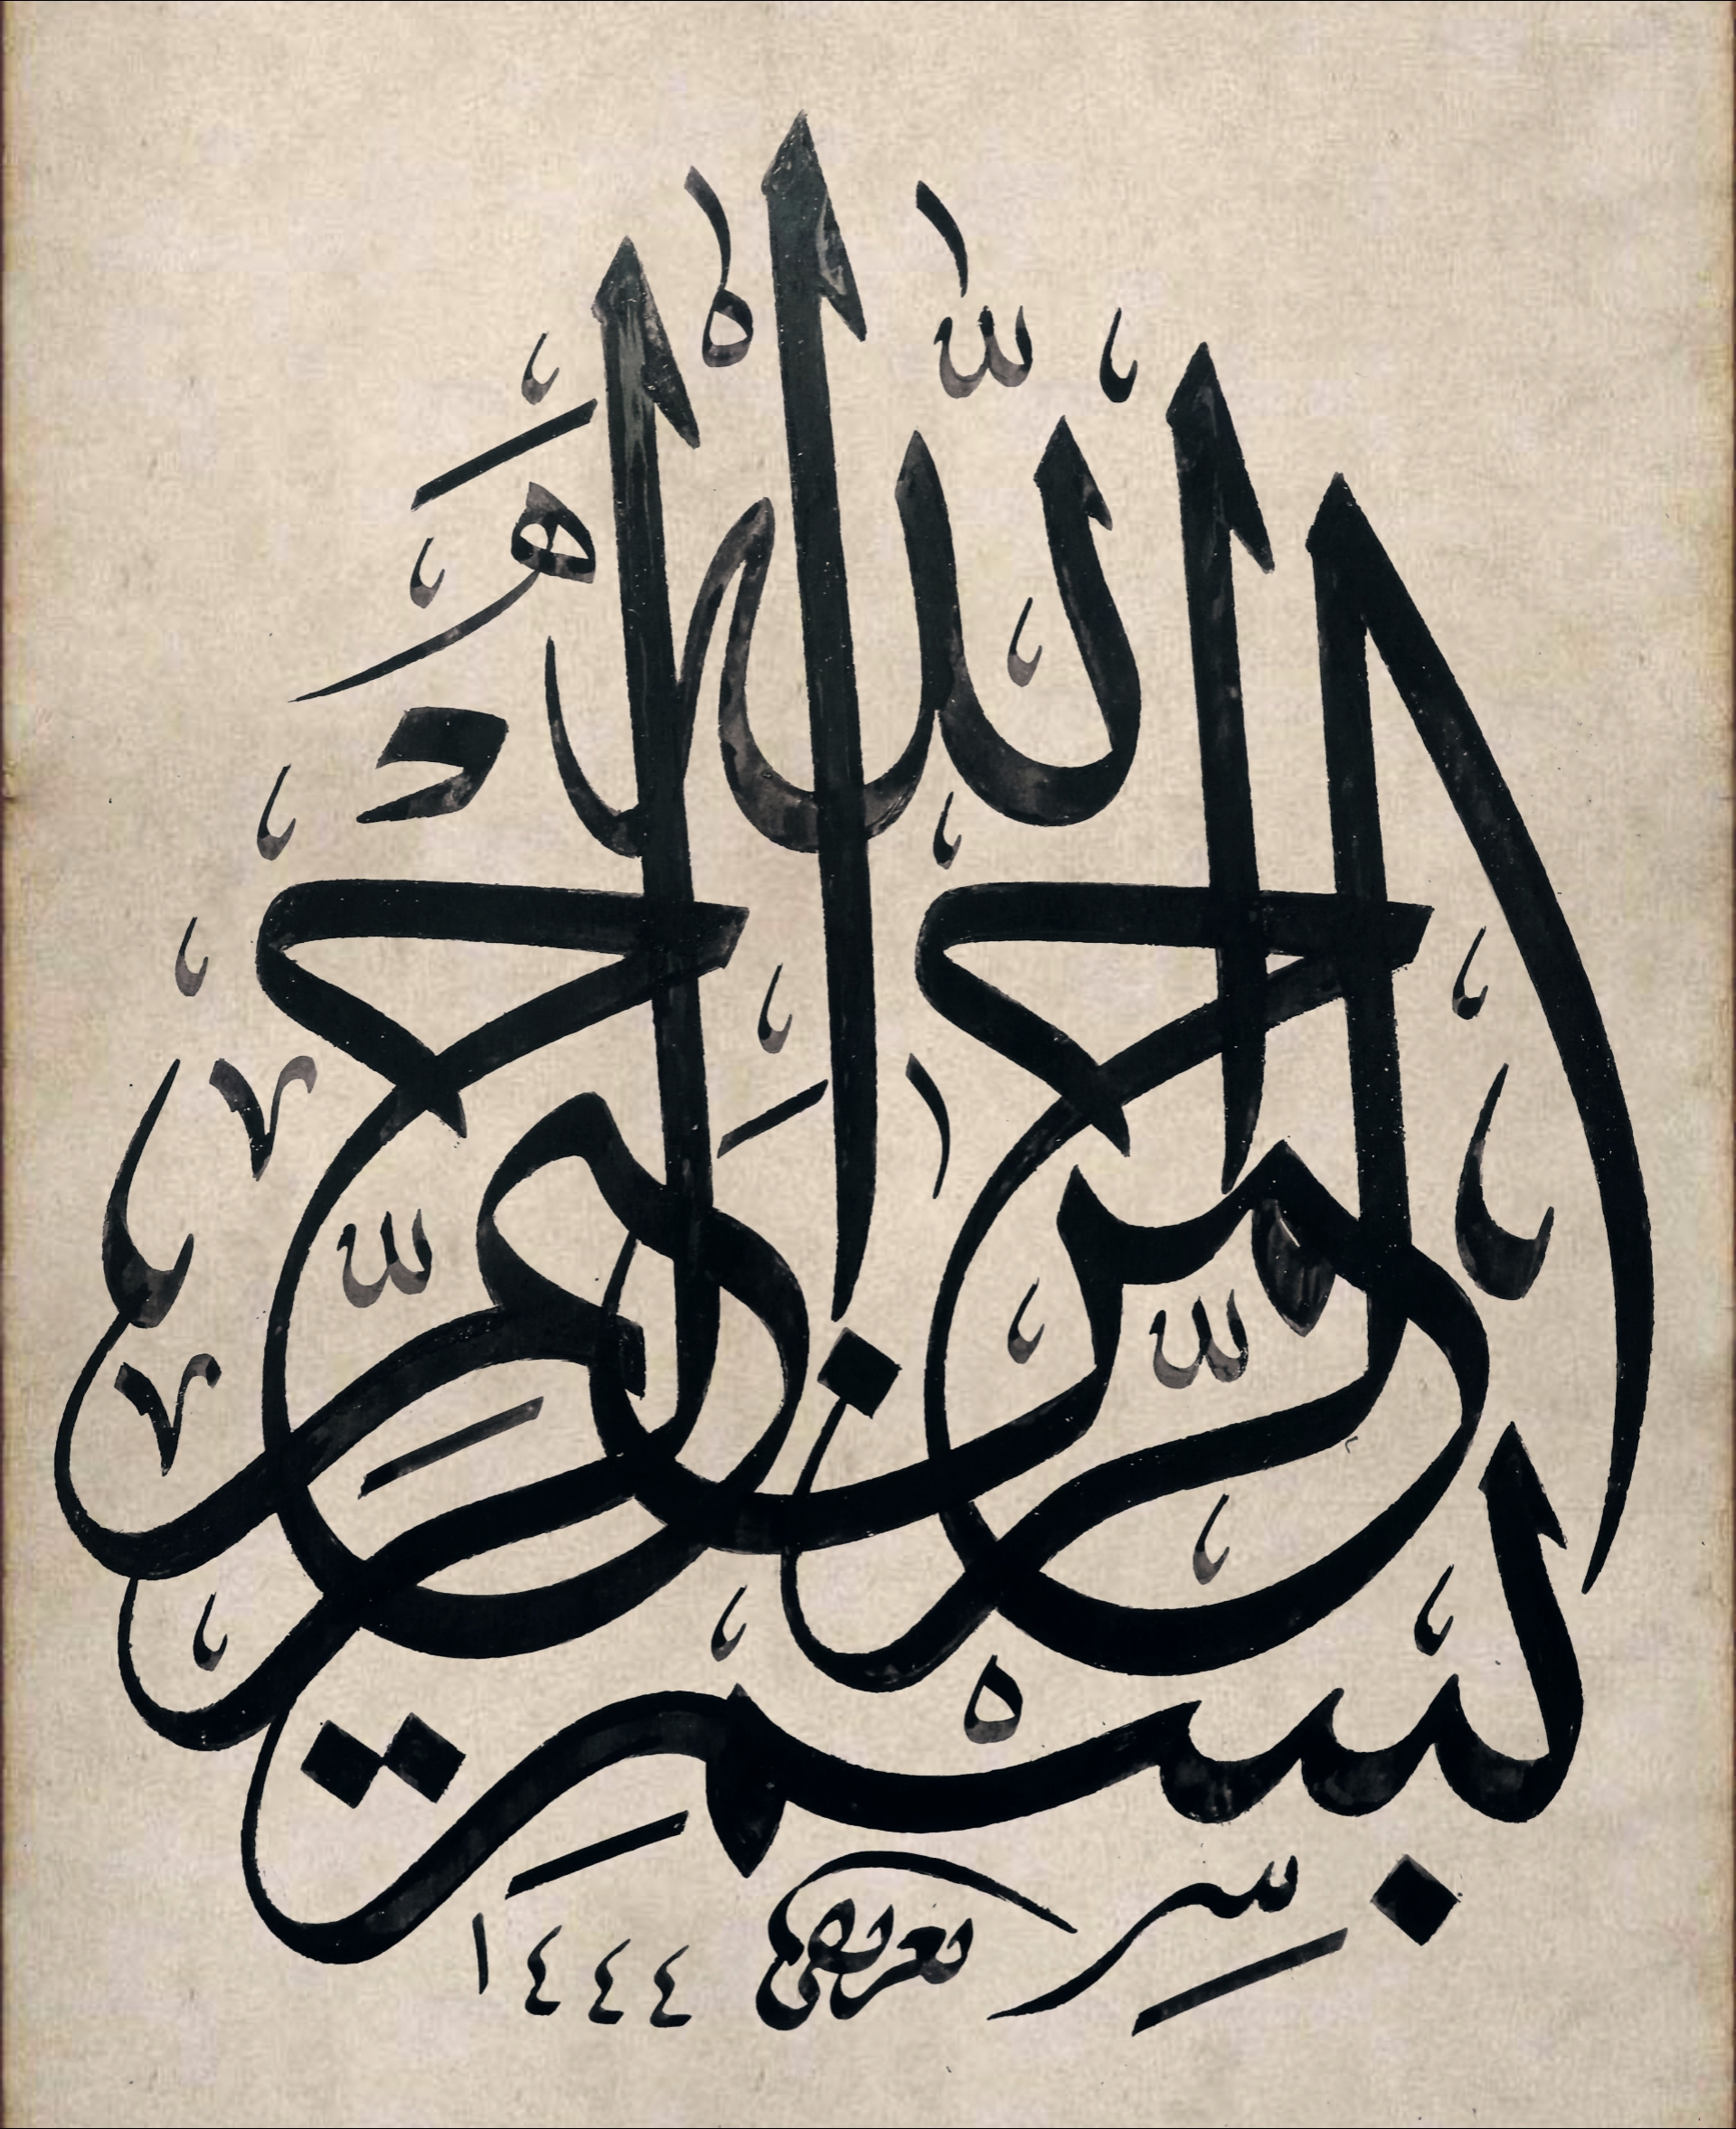 بسم الله الرحمن الرحيم
١٤٤٤